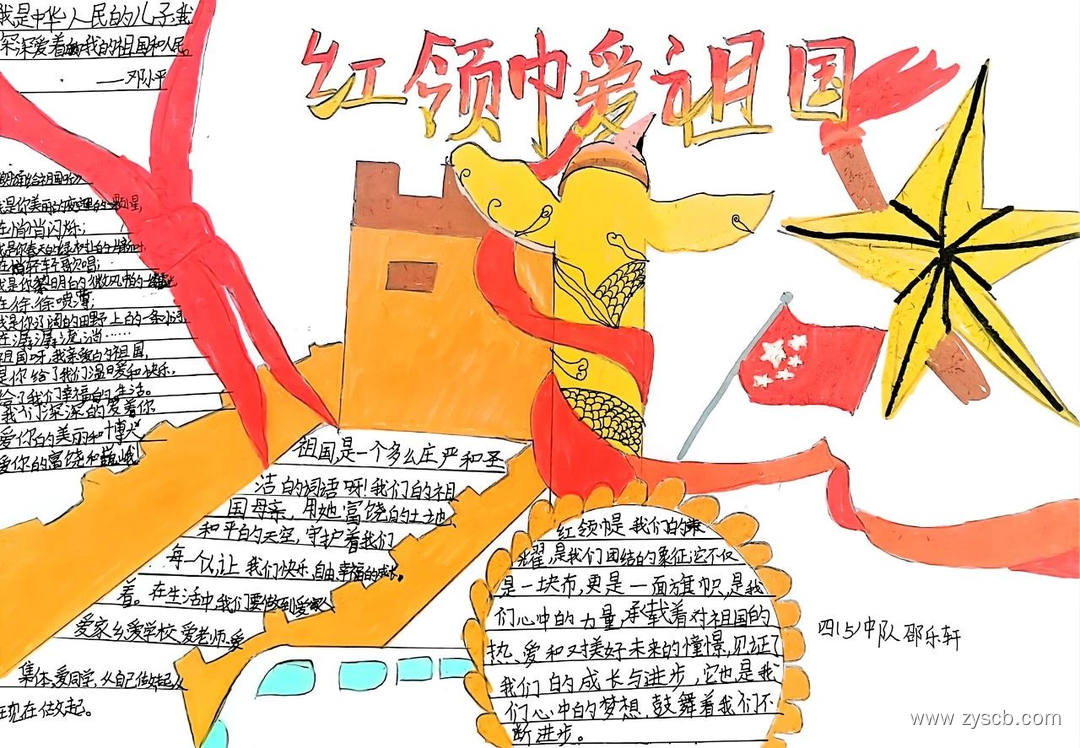 红领巾爱祖国
我是中华人民的儿子,我
深深爱着我的祖国和人民。
——邓小平
在尚尚闪烁;
在徐徐喷
在潺潺流淌……
祖国呀,我亲爱的祖国,
是你给了我们温暖和快乐,
给了我们幸福的生活。
我们深深的爱着你
爱你的美丽和博大
爱你的富饶和巍峨
祖国,是一个多么庄严和圣
洁的词语呀!我们的祖
国母亲,用她富饶的土地、
和平的天空,守护着我们
每一个,让我们快乐,自由,幸福的成长。
着。在生活中,我们要做到爱
爱家乡,爱学校,爱老师,爱
集体,爱同学,从自己做起,从
现在做起。
红领巾是我们的荣
耀,是我们团结的象征,它不仅
是一块布,更是一面旗帜,是我
们心中的力量,承载着对祖国的
热爱和对美好未来的憧憬,见证了
我们的成长与进步,它也是我
们心中的梦想,鼓舞着我们不
断进步。
四(5)中队 邵乐轩
www.zyscb.com